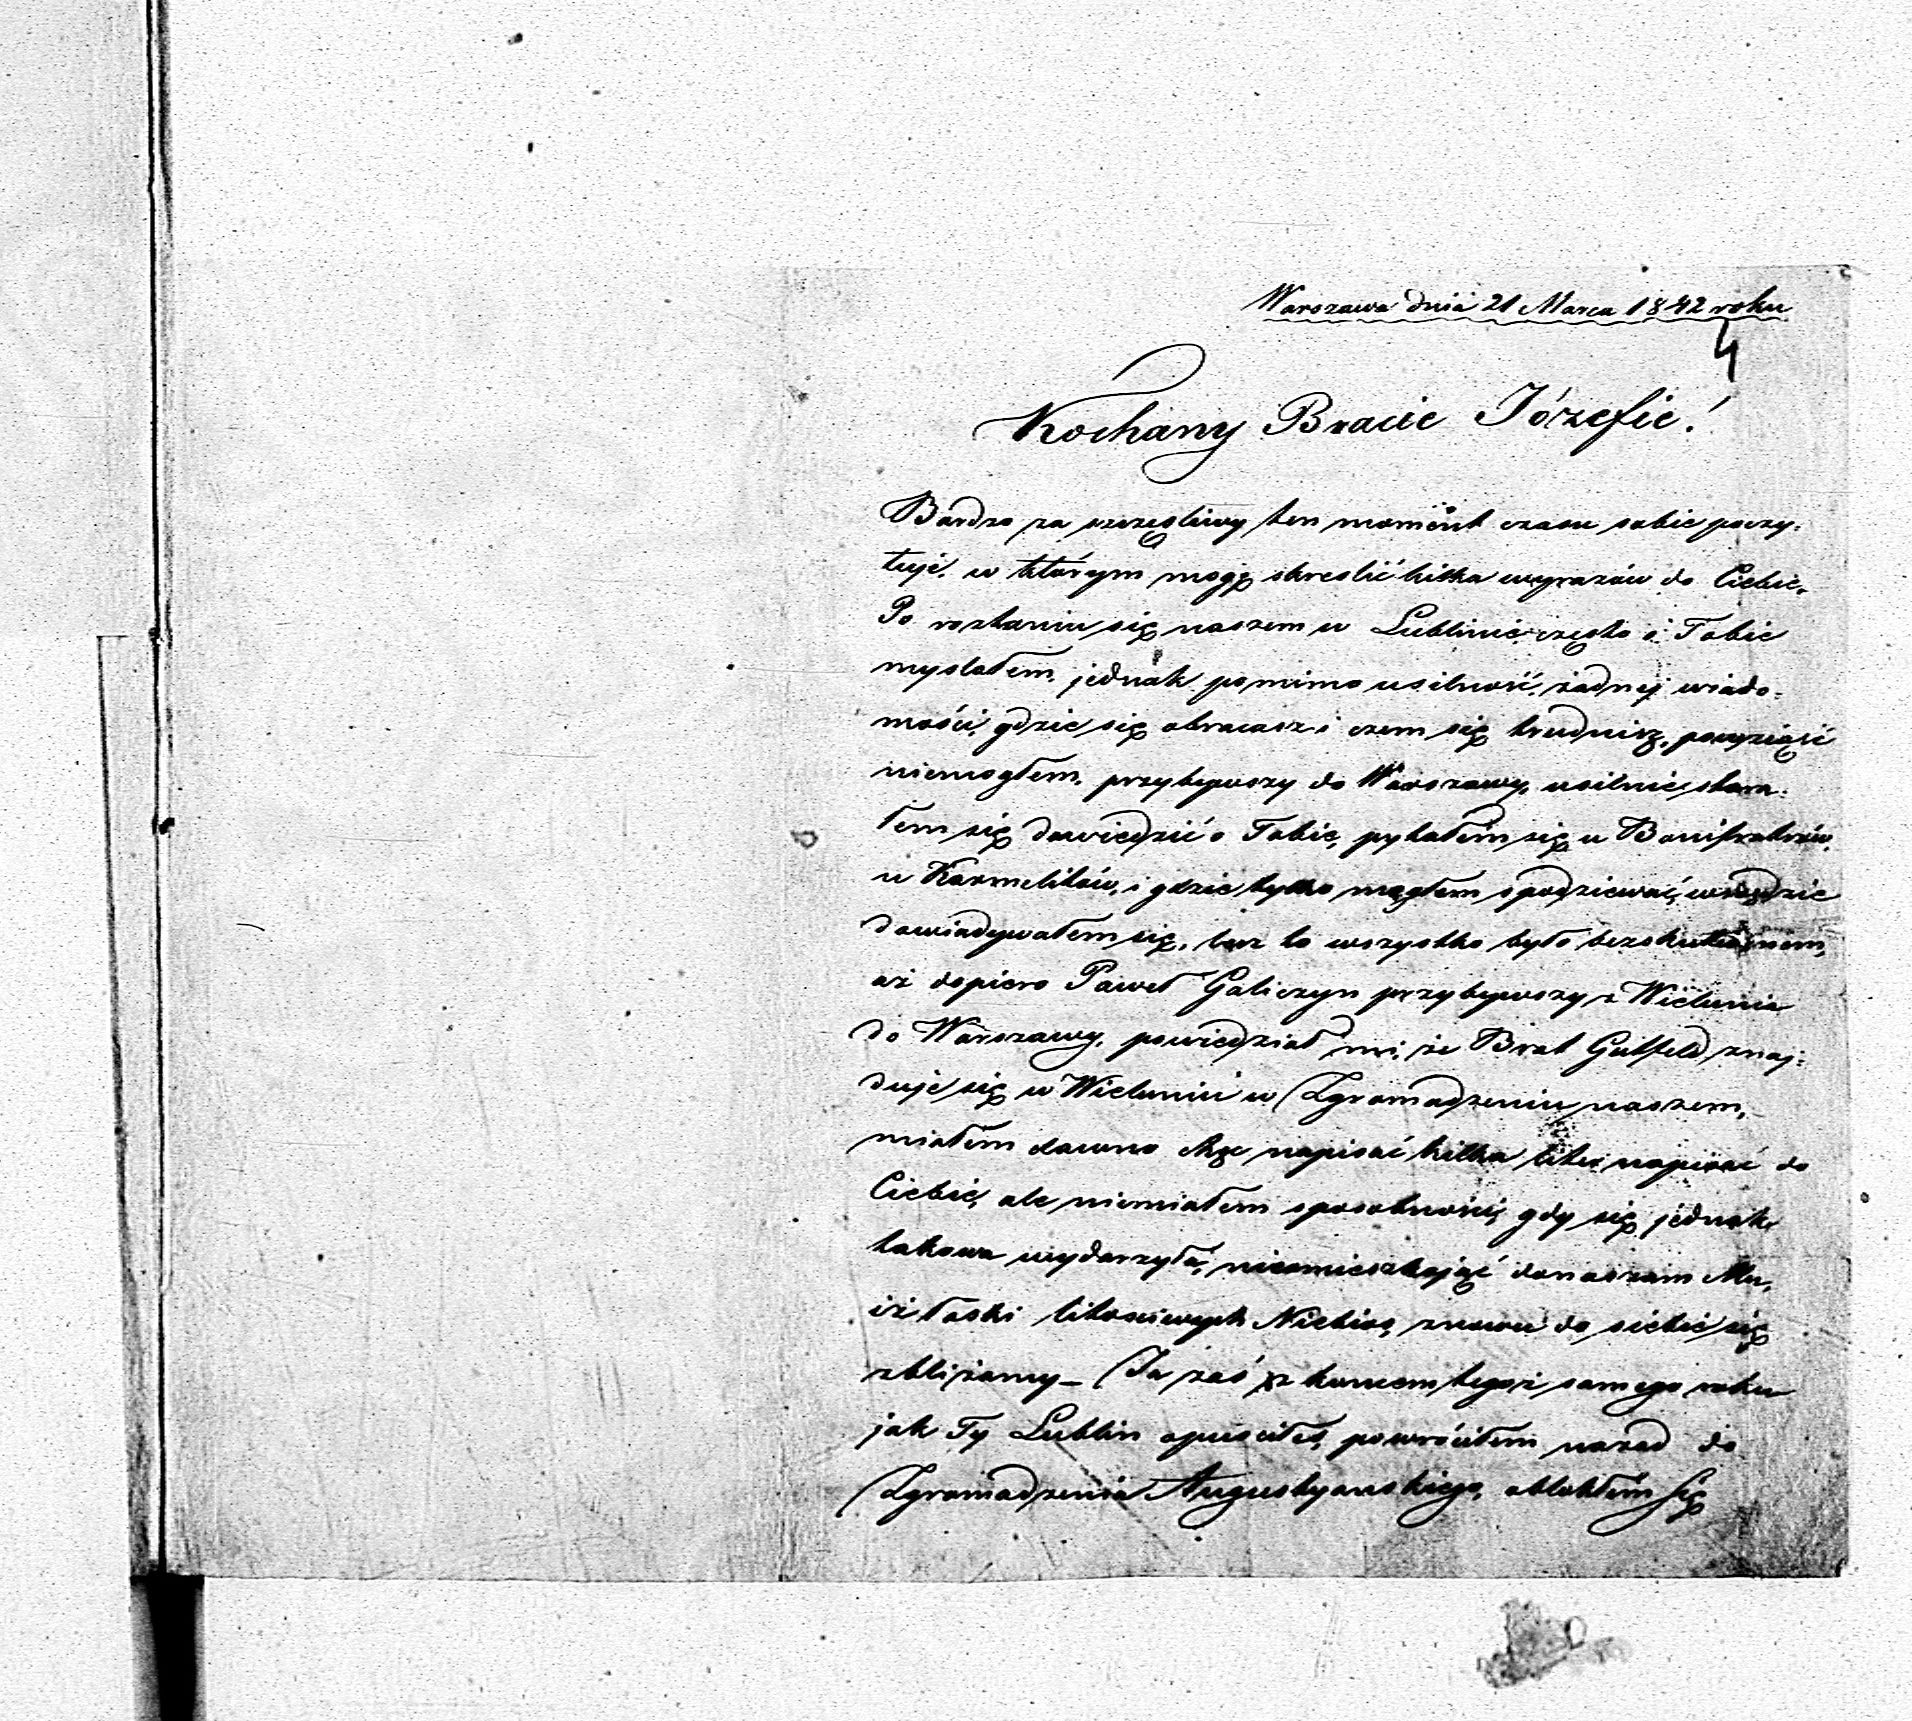 Warszawa dnia 21 Marca 1842 roku
4
Kochany Bracie Józefie!
Bardzo za szczęśliwy ten moment czasu sobie poczy-
tuję, w którym mogę skreslić kilka wyrazów do Ciebie.
Po rostaniu się naszem w Lublinie często o Tobie
myslałem, jednak pomimo usilność, żadnej wiado-
mości, gdzie się obracasz i czem się trudnisz, powziąść
niemogłem, przybywszy do Warszawy, usilnie stara-
łem się dowiedzić o Tobie, pytałem się u Bonifratrów,
u Karmelitów, i gdzie tylko mogłem spodziewać, wszędzie
dowiadywałem się, lecz to wszystko było bezskutecznem,
aż dopiero Paweł Galiczyn przybywszy z Wielunia
do Warszawy, powiedział mi, że Brat Gutfeld znaj-
duje się w Wieluniu w Zgromadzeniu naszem,
miałem dawno chęć napisać kilka liter napisać do
Ciebie, ale niemiałem sposobności, gdy się jednak
takowa wydarzyła, nieomieszkając donaszam Mu,
iż łaski litosciwych Niebios, znowu do siebie się
zbliżamy_ Ja zaś z koncem tegoż samego roku
jak Ty Lublin opusciłeś, powróciłem nazad do
Zgromadzenia Augustyanskiego, oblokłem się